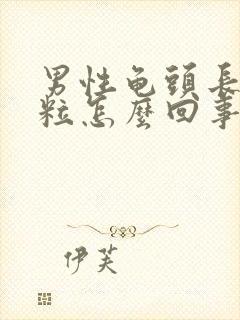 男性龟頭長
粒怎麼回事
伊芙